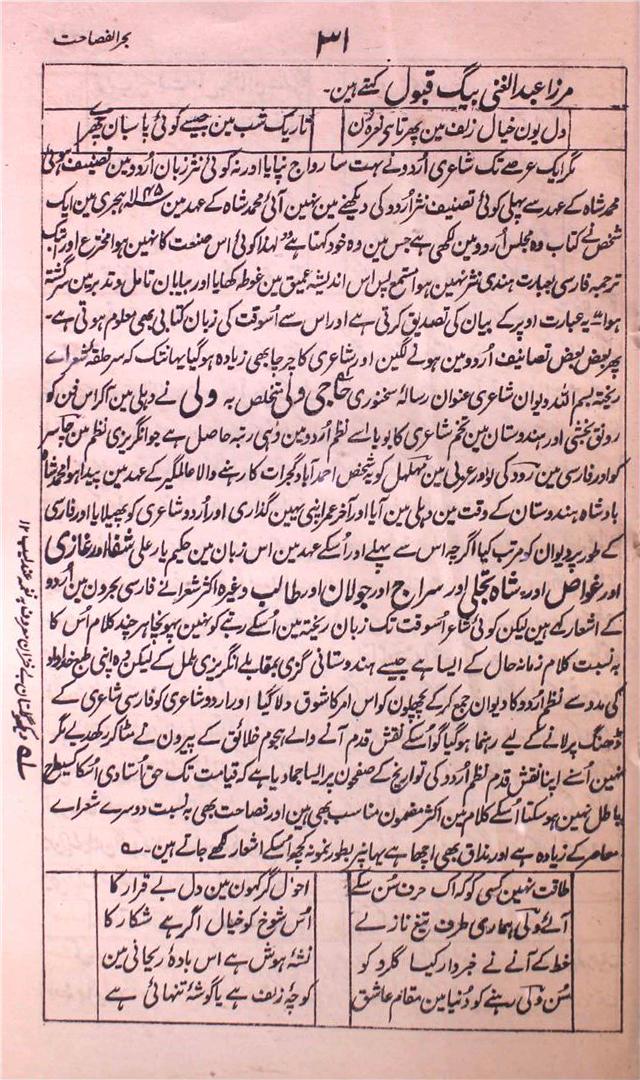 بحر الفصاحت
۳۱
مرزا عبد الغنی بیگ قبول کہتے ہین۔
دل یون خیال زلف مین پھرتا ہے نعرہ زن
تاریک شب مین جیسے کوئی پاسبان پھرے
مگر ایک عرصے تک شاعری اُردو نے بہت سا رواج نپایا اور نہ کوئی نثر زبان اُردو مین تصنیف ہوئی
محمد شاہ کے عہد سے پہلی کوئی تصنیف نثر اُردو کی دیکھنے مین نہین آئی محمد شاہ کے عہد مین ۱۱۴۵ ہجری مین ایک
شخص نے کتاب دہ مجلس اُردو مین لکھی ہے جس مین وہ خود کہتا ہے لہذا کوئی اس صنعت کا نہین ہوا مخترع اور اب تک
ترجمہ فارسی بعبارت ہندی نثر نہین ہوا مستمع پس اس اندیشۂ عمیق مین غوطہ کھایا اور بیابان تامل و تدبر مین سرگشتہ
ہوا یہ عبارت اوپر کے بیان کی تصدیق کرتی ہے اور اس سے اُسوقت کی زبان کتابی بھی معلوم ہوتی ہے۔
پھر بعض بعض تصانیف اُردو مین ہونے لگین اور شاعری کا چرچا بھی زیادہ ہوگیا یہانتک کہ سر حلقۂ شعراے
ریختہ بسم اللہ دیوان شاعری عنوان رسالۂ سخنوری حاجی ولی متخلص بہ ولی نے دہلی مین آکر اس فن کو
رونق بخشی اور ہندوستان مین تخم شاعری کا بویا اسے نظم اُردو مین وہی رتبہ حاصل ہے جو انگریزی نظم مین چاسر
کو اور فارسی مین رودکی کو اور عربی مین مہلہل کو یہ شخص احمد آباد گجرات کا رہنے والا عالمگیر کے عہد مین پیدا ہوا محمد شاہ
بادشاہ ہندوستان کے وقت مین دہلی مین آیا اور آخر عمر اپنی یہین گذاری اور اُردو شاعری کو پھیلایا اور فارسی
کے طور پر دیوان کو مرتب کیا اگرچہ اس سے پہلے اور اُسکے عہد مین اس زبان مین حکیم یار علی شفا اور غازی
اور غواص اور شاہ تجلی اور سراج اور جولان اور طالب وغیرہ اکثر شعرا نے فارسی بحرون مین اُردو
کے اشعار کہے ہین لیکن کوئی شاعر اُسوقت تک زبان ریختہ مین اُسکے رتبے کو نہین پہونچا ہر چند کلام اُس کا
بہ نسبت کلام زمانہ حال کے ایسا ہے جیسے ہندوستانی گزی بمقابلے انگریزی ململ کے لیکن وہ اپنی طبع خداداد
کی مدد سے نظم اُردو کا دیوان جمع کر کے پچھلون کو اس امر کا شوق دلا گیا اور اردو شاعری کو فارسی شاعری کے
ڈھنگ پر لانے کے لیے رہنما ہوگیا گو اُسکے نقش قدم آنے والے ہجوم خلائق کے پیرون نے مٹا کر رکھدیے مگر
نہین اُسنے اپنا نقش قدم نظم اُردو کی تواریخ کے صفحون پر ایسا جما دیا ہے کہ قیامت تک حق اُستادی اُسکا کسیطرح
باطل نہین ہوسکتا اُسکے کلام مین اکثر مضمون مناسب بھی ہین اور فصاحت بھی بہ نسبت دوسرے شعراے
معاصر کے زیادہ ہے اور مذاق بھی اچھا ہے یہان پر بطور نمونہ کچھ اُسکے اشعار لکھے جاتے ہین۔
طاقت نہین کسی کو کہ اک حرف سُن سکے
احوال گر کہون مین دل بے قرار کا
آئے ولی ہماری طرف تیغ ناز لے
اُس شوخ کو خیال اگر ہے شکار کا
خط کے آنے نے خبردار کیا گلرو کو
نشۂ ہوش ہے اس بادۂ ریحانی مین
سُن ولی رہنے کو دُنیا مین مقام عاشق
کوچۂ زلف ہے یا گوشۂ تنہائی ہے